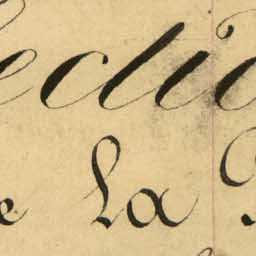 ectio
e La